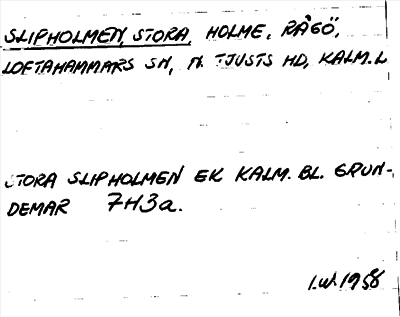 SLIPHOLMEN, STORA, HOLME, RÅGÖ,
LOFTAHAMMARS SN, N. TJUSTS HD, KALM. L
STORA SLIPHOLMEN EK KALM. BL. GRUN-
DEMAR 7H3a.
1958